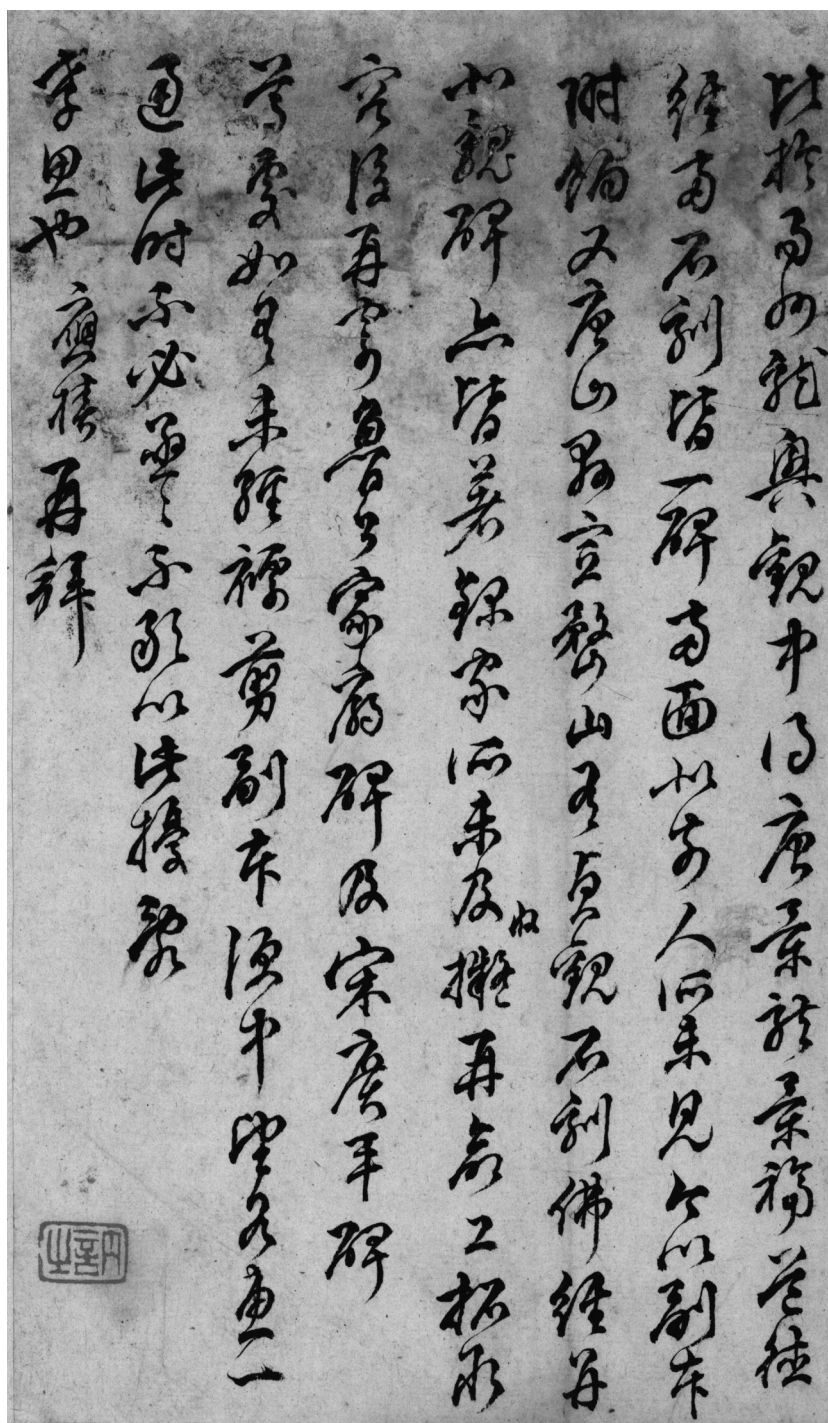 比於易州龍興觀中得唐景龍景福道德
經兩石刻皆一碑兩面似前人所未見今以副本
附餉又唐山縣宣嵍山有貞觀石刻佛經并
北魏碑亦皆著錄家所未及收擬再命工拓取
容後再寄魯公家廟碑及宋廣平碑
尊處如有未經裱剪副本便中望各惠一
通此時不必亟亟不敢以此擾勞
孝思也 應再拜